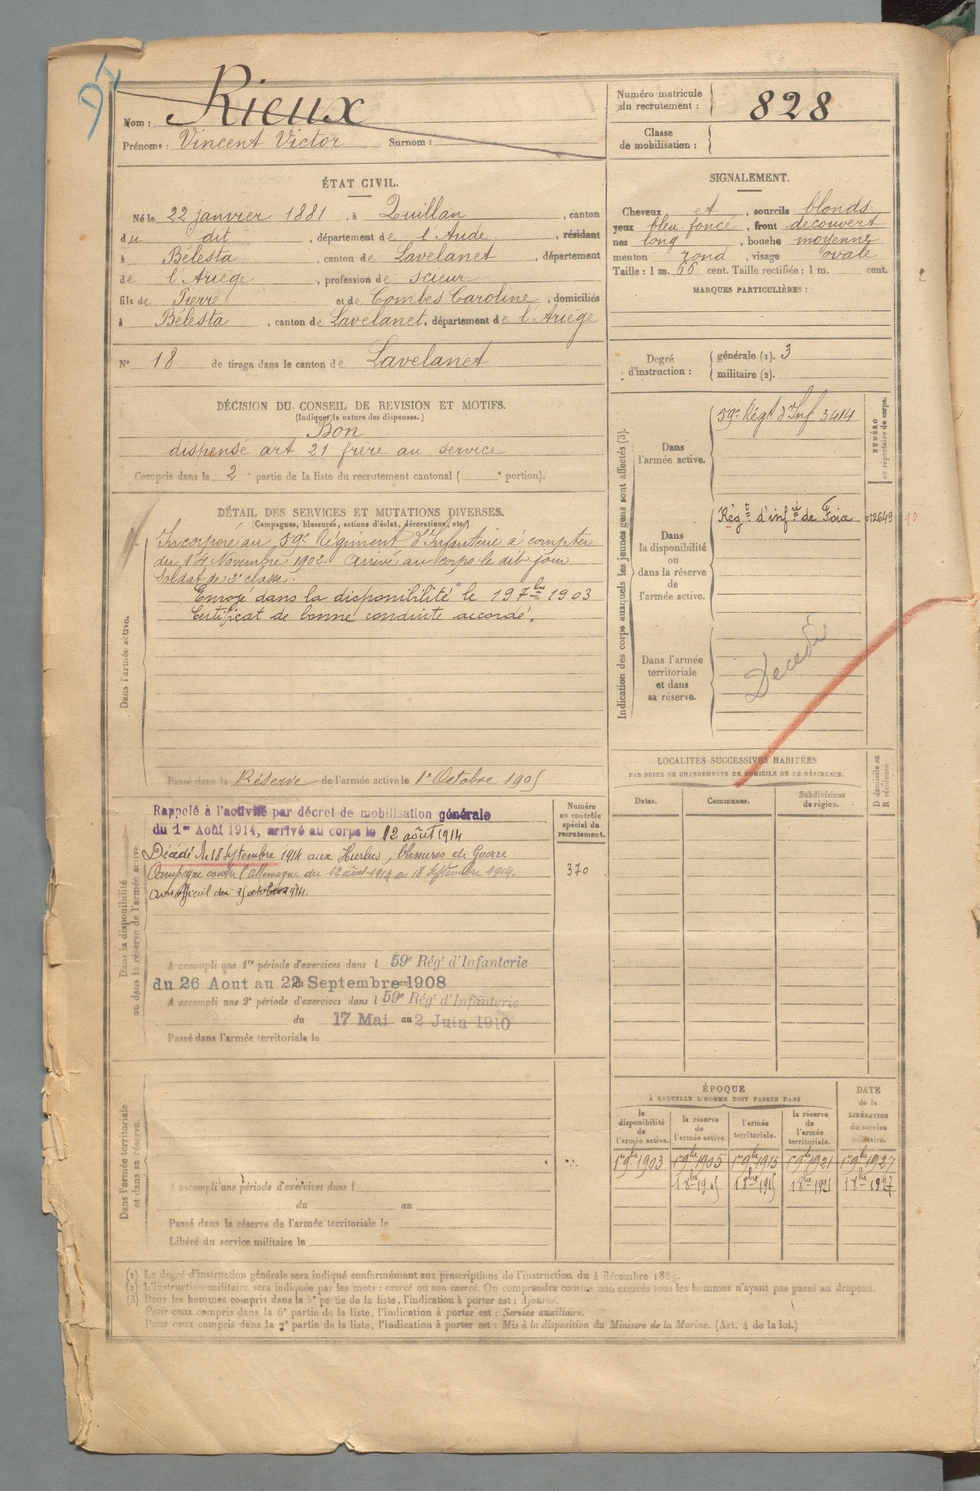 95
Nom : Rieux
Prénoms : Vincent Victor Surnom :
Numéro matricule du recrutement : 828
Classe de mobilisation :
ÉTAT CIVIL.
Né le 22 janvier 1881, à Quillan, canton
du dit, département de l'Aude, résidant
à Bélesta, canton de Lavelanet, département
de l'Ariège, profession de scieur
fils de Pierre et de Combes Caroline, domiciliés
à Bélesta, canton de Lavelanet, département de l'Ariège
N° 18 de tirage dans le canton de Lavelanet
SIGNALEMENT.
Cheveux et, sourcils blonds
yeux bleu foncé, front découvert
nez long, bouche moyenne
menton rond, visage ovale
Taille : 1 m. 66 cent. Taille rectifiée : 1 m. cent.
MARQUES PARTICULIÈRES :
Degré d'instruction : générale (1). 3
militaire (2).
DÉCISION DU CONSEIL DE REVISION ET MOTIFS.
(Indiquer la nature des dispenses.)
Bon
dispensé art 21 frère au service
Compris dans la 2e partie de la liste du recrutement cantonal ( e portion).
DÉTAIL DES SERVICES ET MUTATIONS DIVERSES.
(Campagnes, blessures, actions d'éclat, décorations, etc.)
Dans l'armée active.
Incorporé au 59e Régiment d'Infanterie à compter
du 14 Novembre 1902. Arrivé au corps le dit jour
Soldat de 2e classe.
Envoyé dans la disponibilité le 19 7bre 1903
Certificat de bonne conduite accordé.
Passé dans la Réserve de l'armée active le 1er Octobre 1905
Indication des corps auxquels les jeunes gens sont affectés (3).
NUMÉRO au répertoire du corps.
Dans l'armée active.
59e Régt d'Inf. 3414
Dans la disponibilité ou dans la réserve de l'armée active.
Régt d'infie de Foix 012649 10
Dans l'armée territoriale et dans sa réserve.
Décédé
LOCALITÉS SUCCESSIVES HABITÉES
PAR SUITE DE CHANGEMENTS DE DOMICILE OU DE RÉSIDENCE.
Dates. Communes. Subdivisions de région. D domicile ou R résidence.
Dans la disponibilité ou dans la réserve de l'armée active
Numéro au contrôle spécial du recrutement.
370
Rappelé à l'activité par décret de mobilisation générale
du 1er Août 1914, arrivé au corps le 12 août 1914
Décédé le 18 Septembre 1914 aux Hurlus, blessures de Guerre
Campagne contre l'Allemagne du 12 août 1914 au 18 Septembre 1914.
A accompli une 1re période d'exercices dans l 59e Rég' d'Infanterie
du 26 Aout au 22 Septembre 1908
A accompli une 2e période d'exercices dans l 59e Rég' d'Infanterie
du 17 Mai au 2 Juin 1910
Passé dans l'armée territoriale le
Dans l'armée territoriale et dans sa réserve.
A accompli une période d'exercices dans l
du au
Passé dans la réserve de l'armée territoriale le
Libéré du service militaire le
ÉPOQUE
À LAQUELLE L'HOMME DOIT PASSER DANS
la disponibilité de l'armée active. la réserve de l'armée active. l'armée territoriale. la réserve de l'armée territoriale. DATE de la LIBÉRATION du service militaire.
1er 9bre 1903 1er 9bre 1905 1er 9bre 1915 1er 9bre 1921 1er 9bre 1927
1 8bre 1905 1 8bre 1915 1 8bre 1921 1 8bre 1927
(1) Le degré d'instruction générale sera indiqué conformément aux prescriptions de l'instruction du 4 décembre 1889.
(2) L'instruction militaire sera indiquée par les mots : exercé ou non exercé. On comprendra comme non exercés tous les hommes n'ayant pas passé au drapeau.
(3) Pour les hommes compris dans la 5e partie de la liste, l'indication à porter est : Ajourné.
Pour ceux compris dans la 6e partie de la liste, l'indication à porter est : Service auxiliaire.
Pour ceux compris dans la 7e partie de la liste, l'indication à porter est : Mis à la disposition du Ministre de la Marine. (Art. 4 de la loi.)